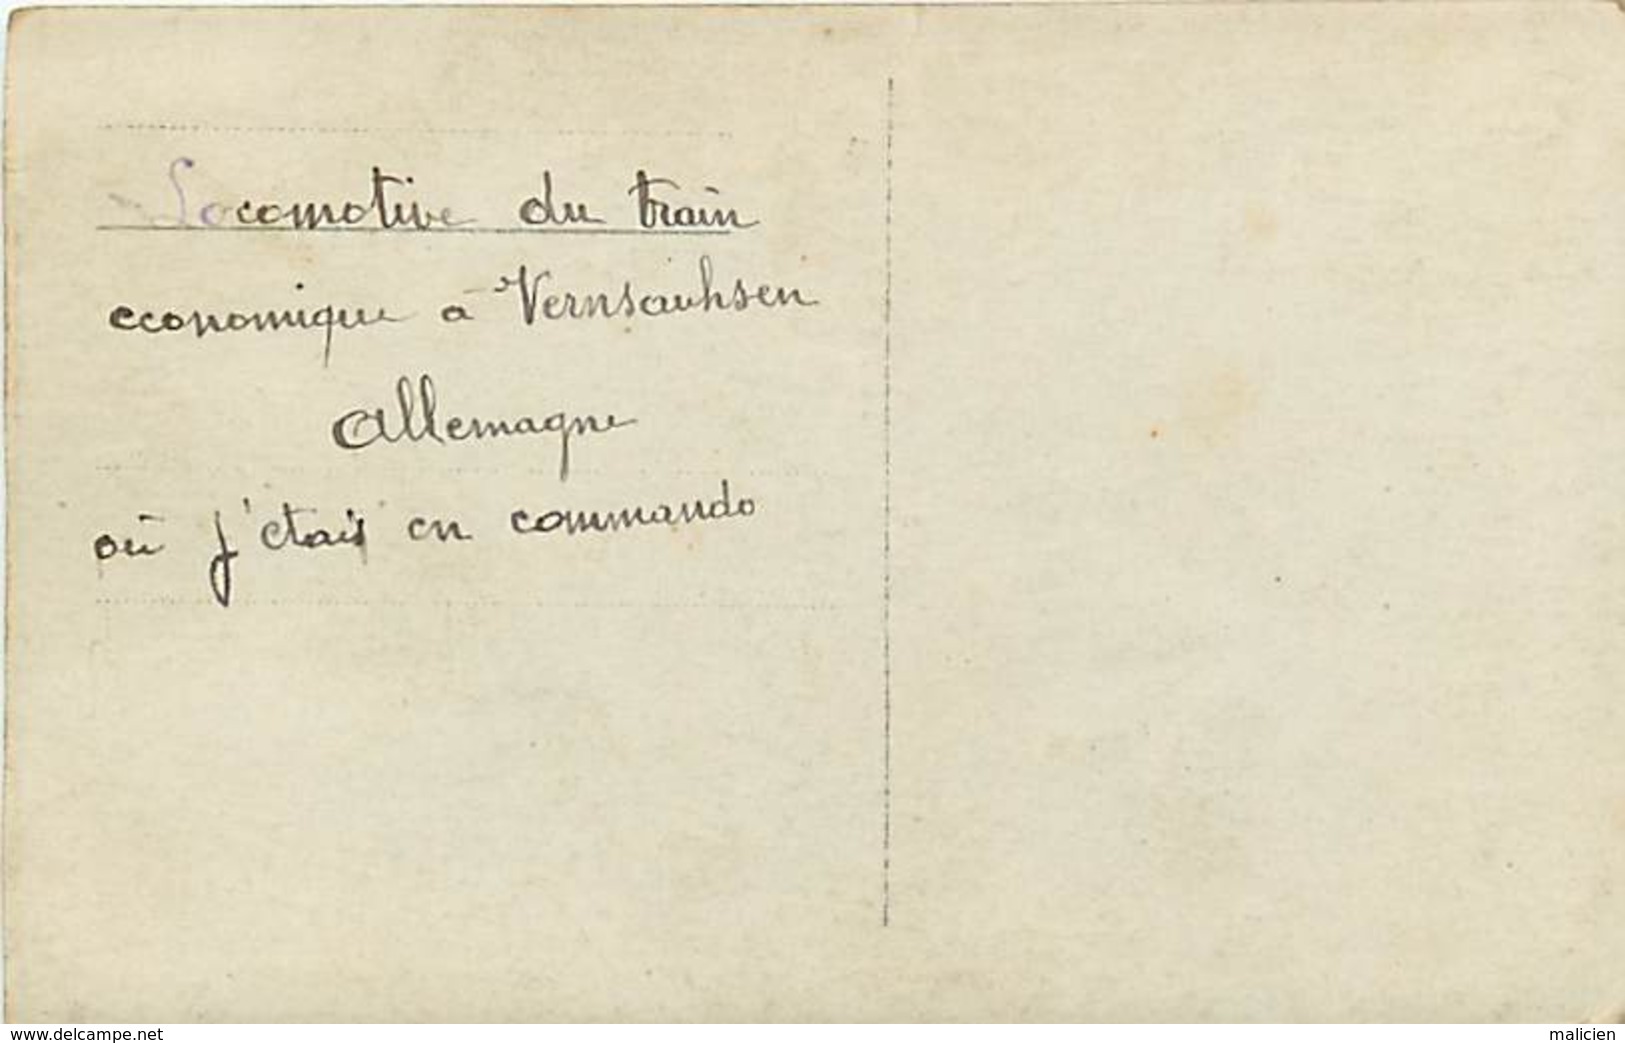 Locomotive du train
economique à Vernsauhsen
Allemagne
où j'etais en commando
www.delcampe.net
malicien